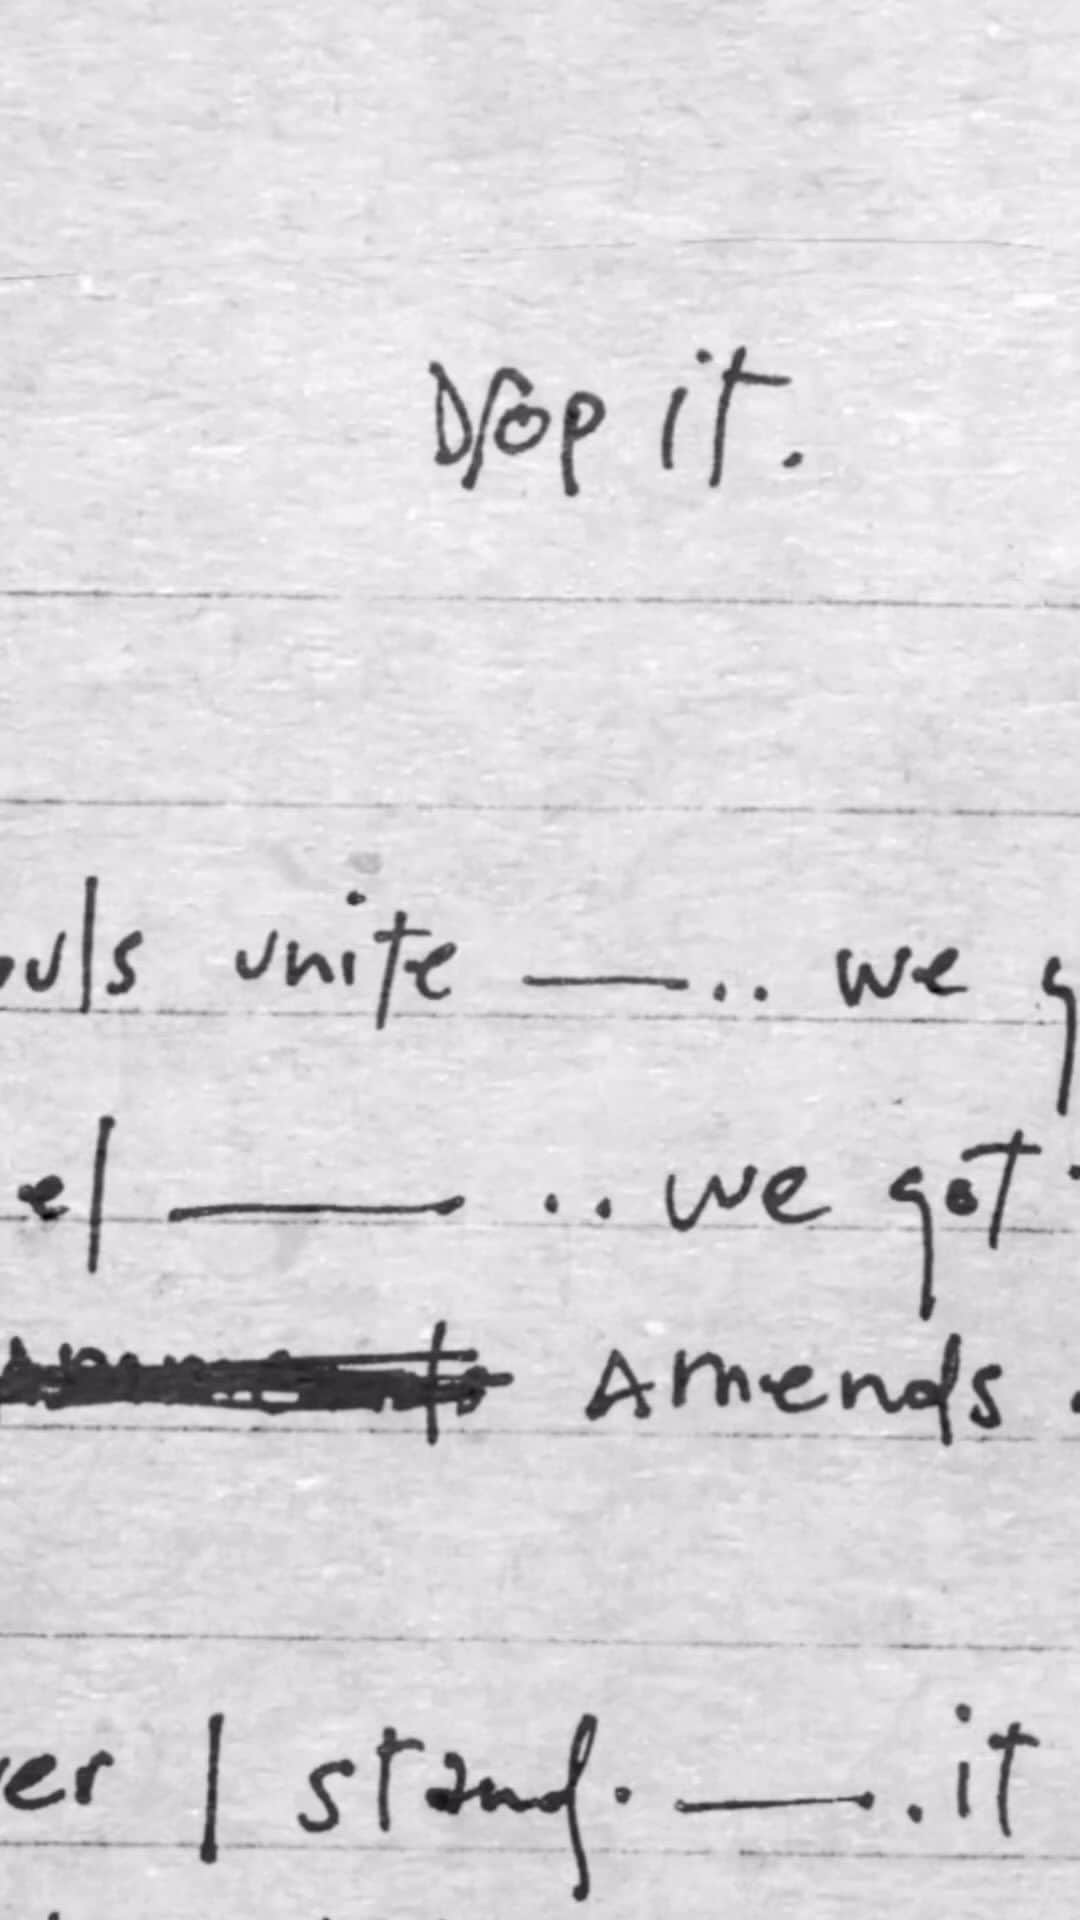 Drop it.
ouls unite —.. we g
el — .. we got
Amends
er I stand. —. . it